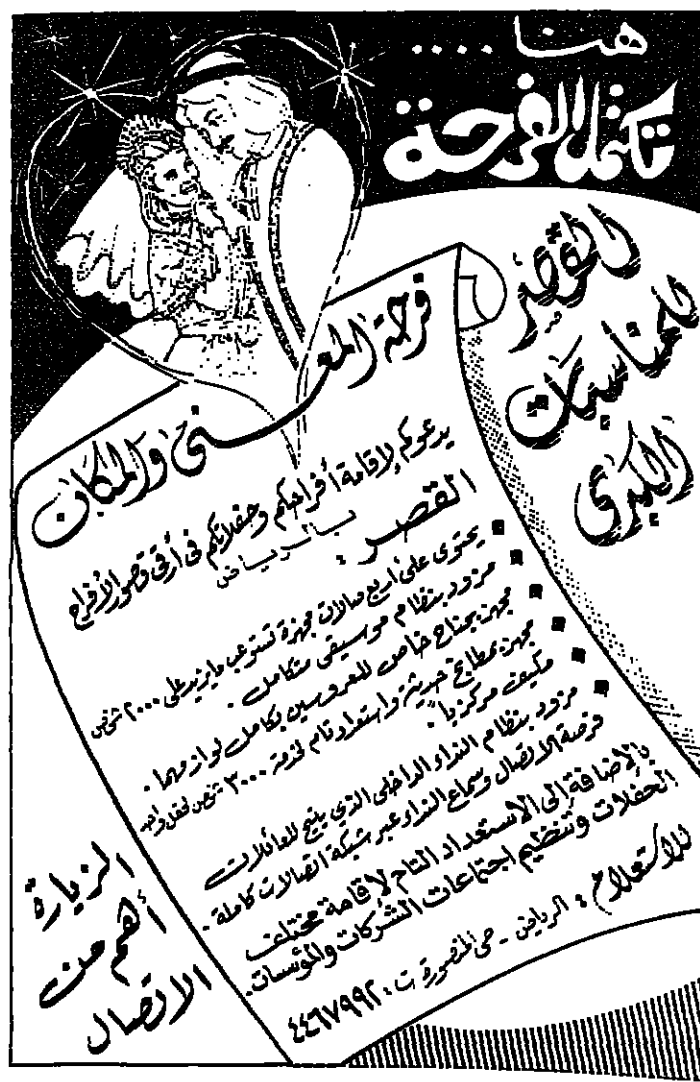 هنا ....
تكتمل الفرحة
القصر
للمناسبات
الكبرى
فرحة المعنى والمكان
يدعوكم لإقامة أفراحكم وحفلاتكم فى أرقى قصور الأفراح
القصر بالرياض :
▪ يحتوى على أربع صالات مجهزة تستوعب مايزيد على ٢٠٠٠ شخص
▪ مزود بنظام موسيقى متكامل .
▪ مجهز بجناح خاص للعروسين بكامل لوازمهما .
▪ مجهز بمطابخ حديثة واستعداد تام لخدمة ٣٠٠٠ شخص لحفل واحد
▪ مكيف مركزياً .
▪ مزود بنظام النداء الداخلى الذي يتيح للعائلات
فرصة الاتصال وسماع النداء عبر شبكة اتصالات كاملة .
بالإضافة إلى الاستعداد التام لاقامة مختلف
الحفلات وتنظيم اجتماعات الشركات والمؤسسات .
للاستعلام : الرياض - حى المنصورة ت : ٤٤٦٧٩٩٢
الزيارة
أهم من
الاتصال